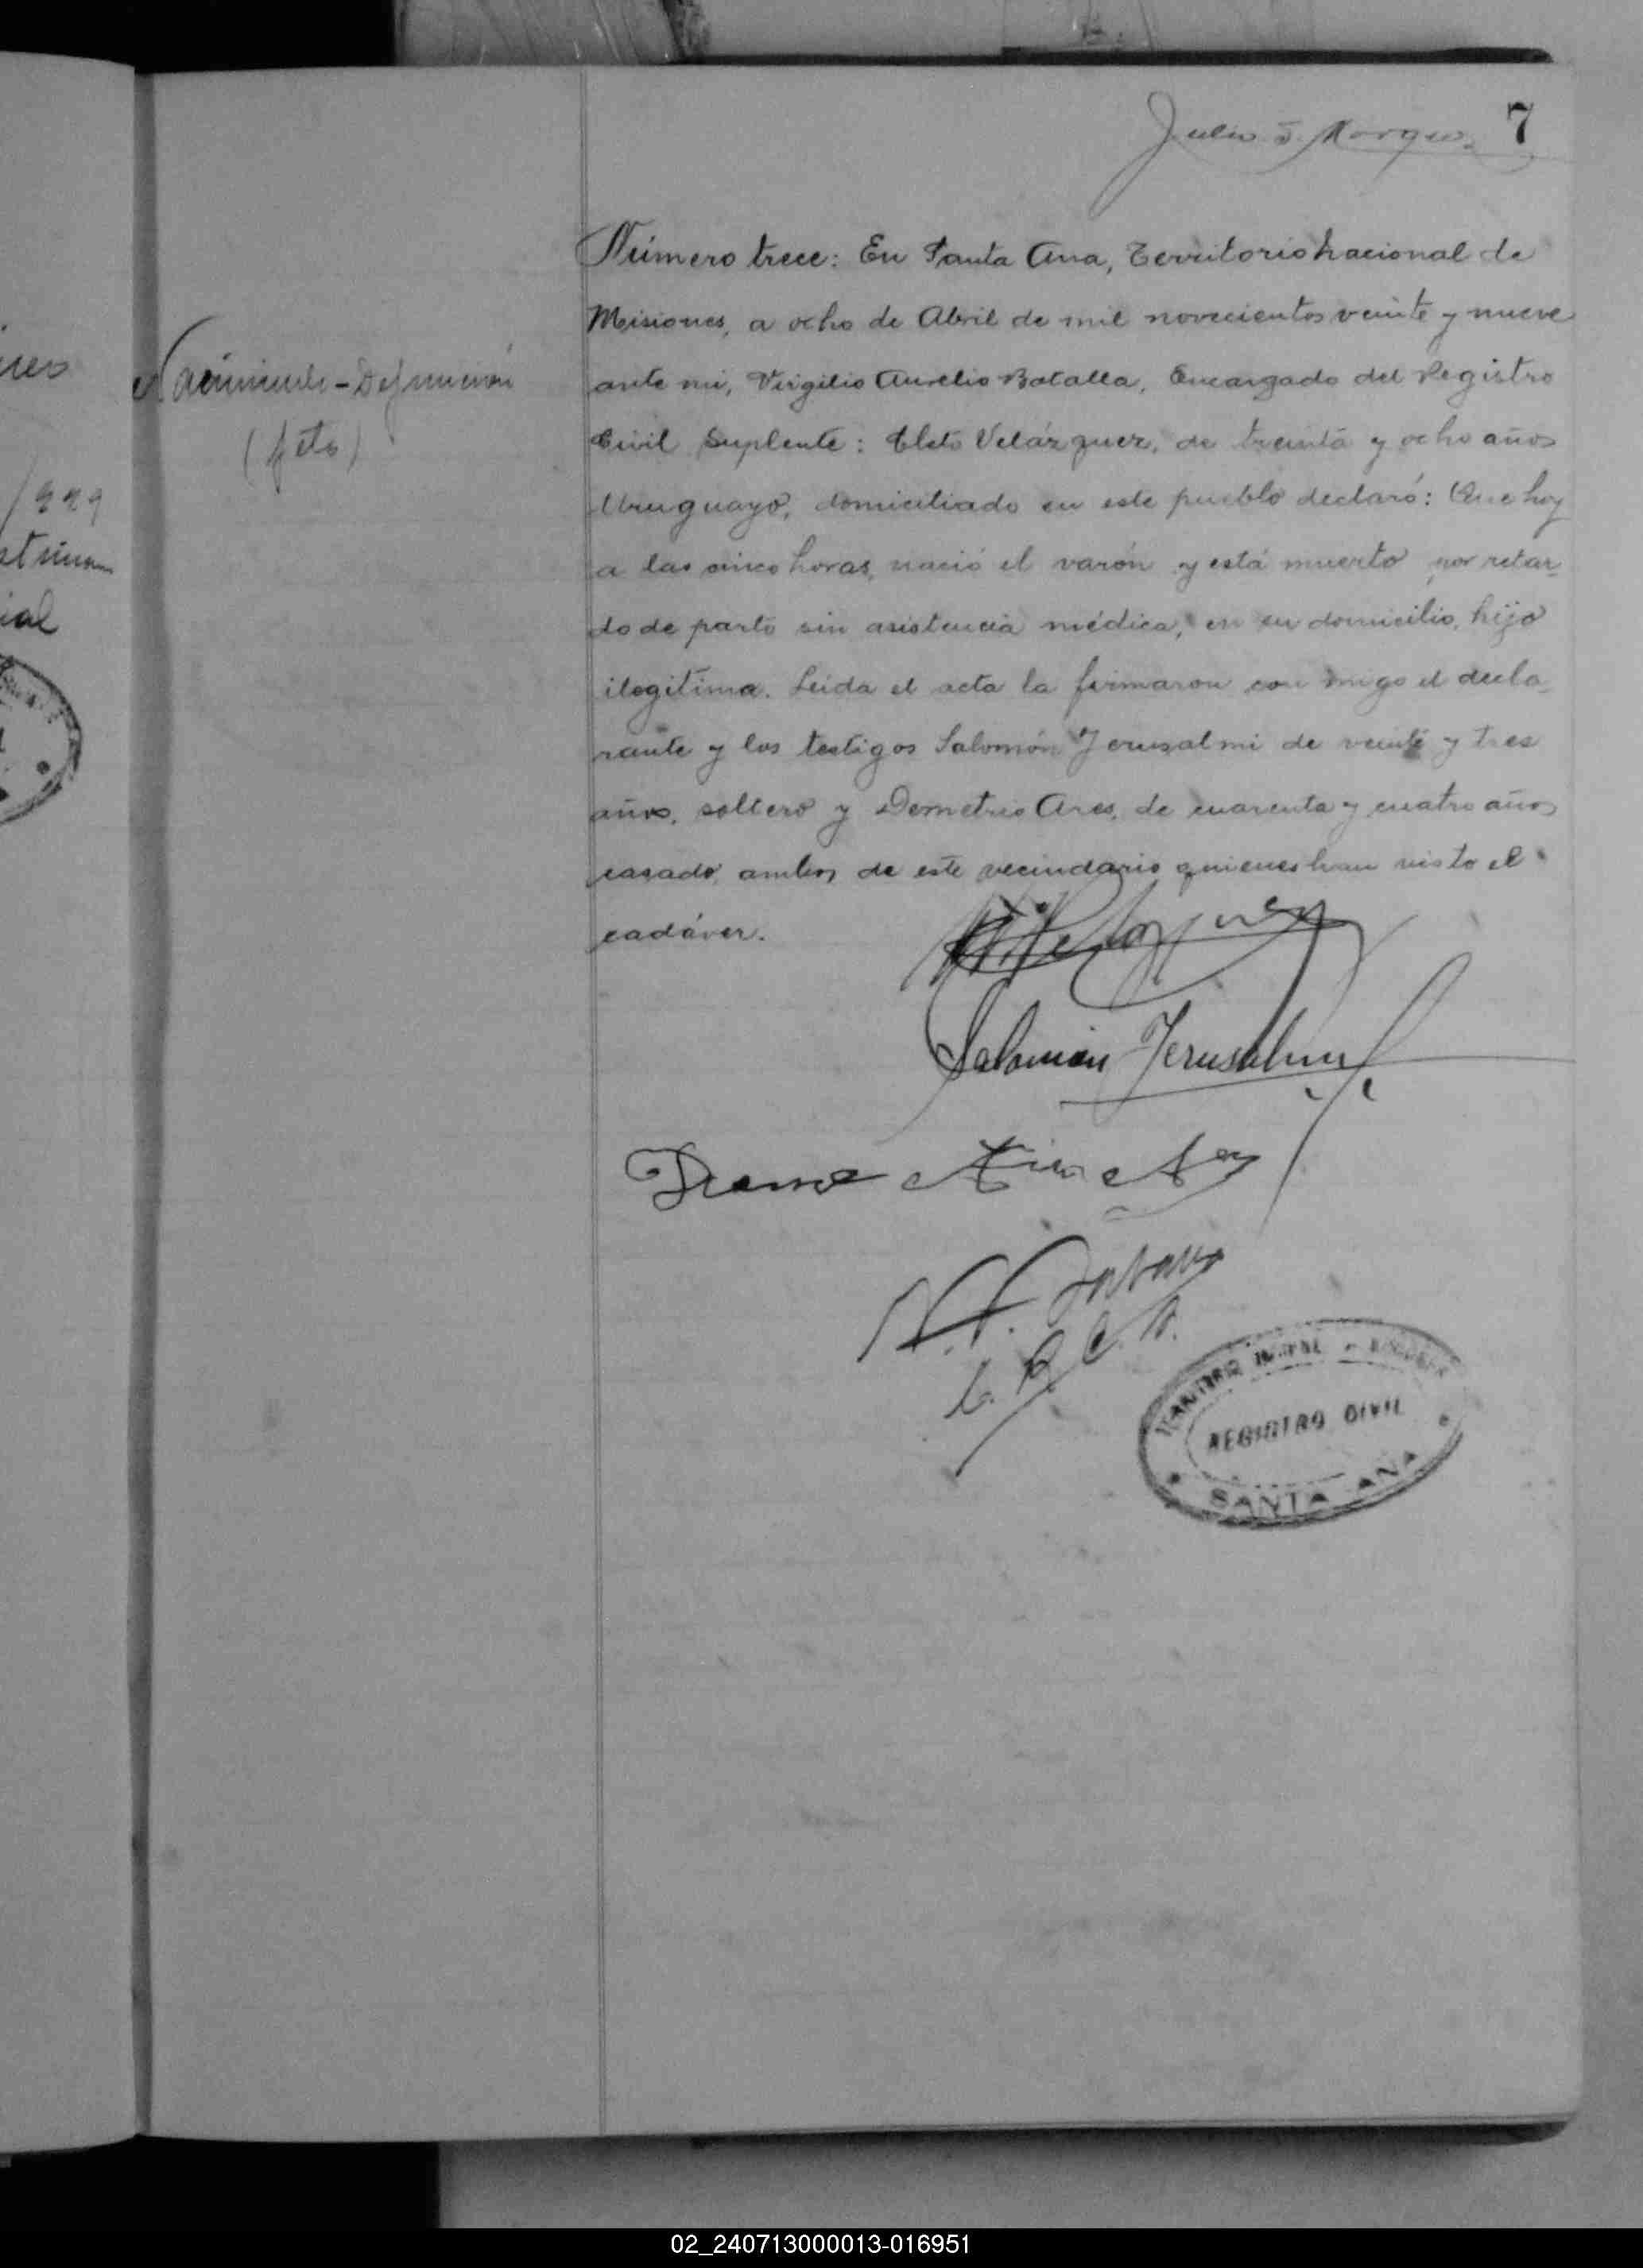 7
Número trece: En Santa Ana, Territorio nacional de
Misiones, a ocho de Abril de mil novecientos veinte y nueve
ante mi, Virgilio Aurelio Batalla, Encargado del Registro
Civil Suplente: Cleto Velázquez, de treinta y ocho años
Uruguayo, domiciliado en este pueblo declaró: Que hoy
a las cinco horas, nació el varón y está muerto por retar-
do de parto sin asistencia médica, en su domicilio, hijo
ilegitima. Leida el acta la firmaron con migo el decla-
rante y los testigos Salomón Jerusalmi de veinte y tres
años, soltero y Demetrio Ares, de cuarenta y cuatro años
casado, ambos de este vecindario quienes han visto el
cadáver.
Nacimiento-Defunción
(feto)
1929
ial
Salomón Jerusalmi
REGISTRO CIVIL
SANTA ANA
02_240713000013-016951